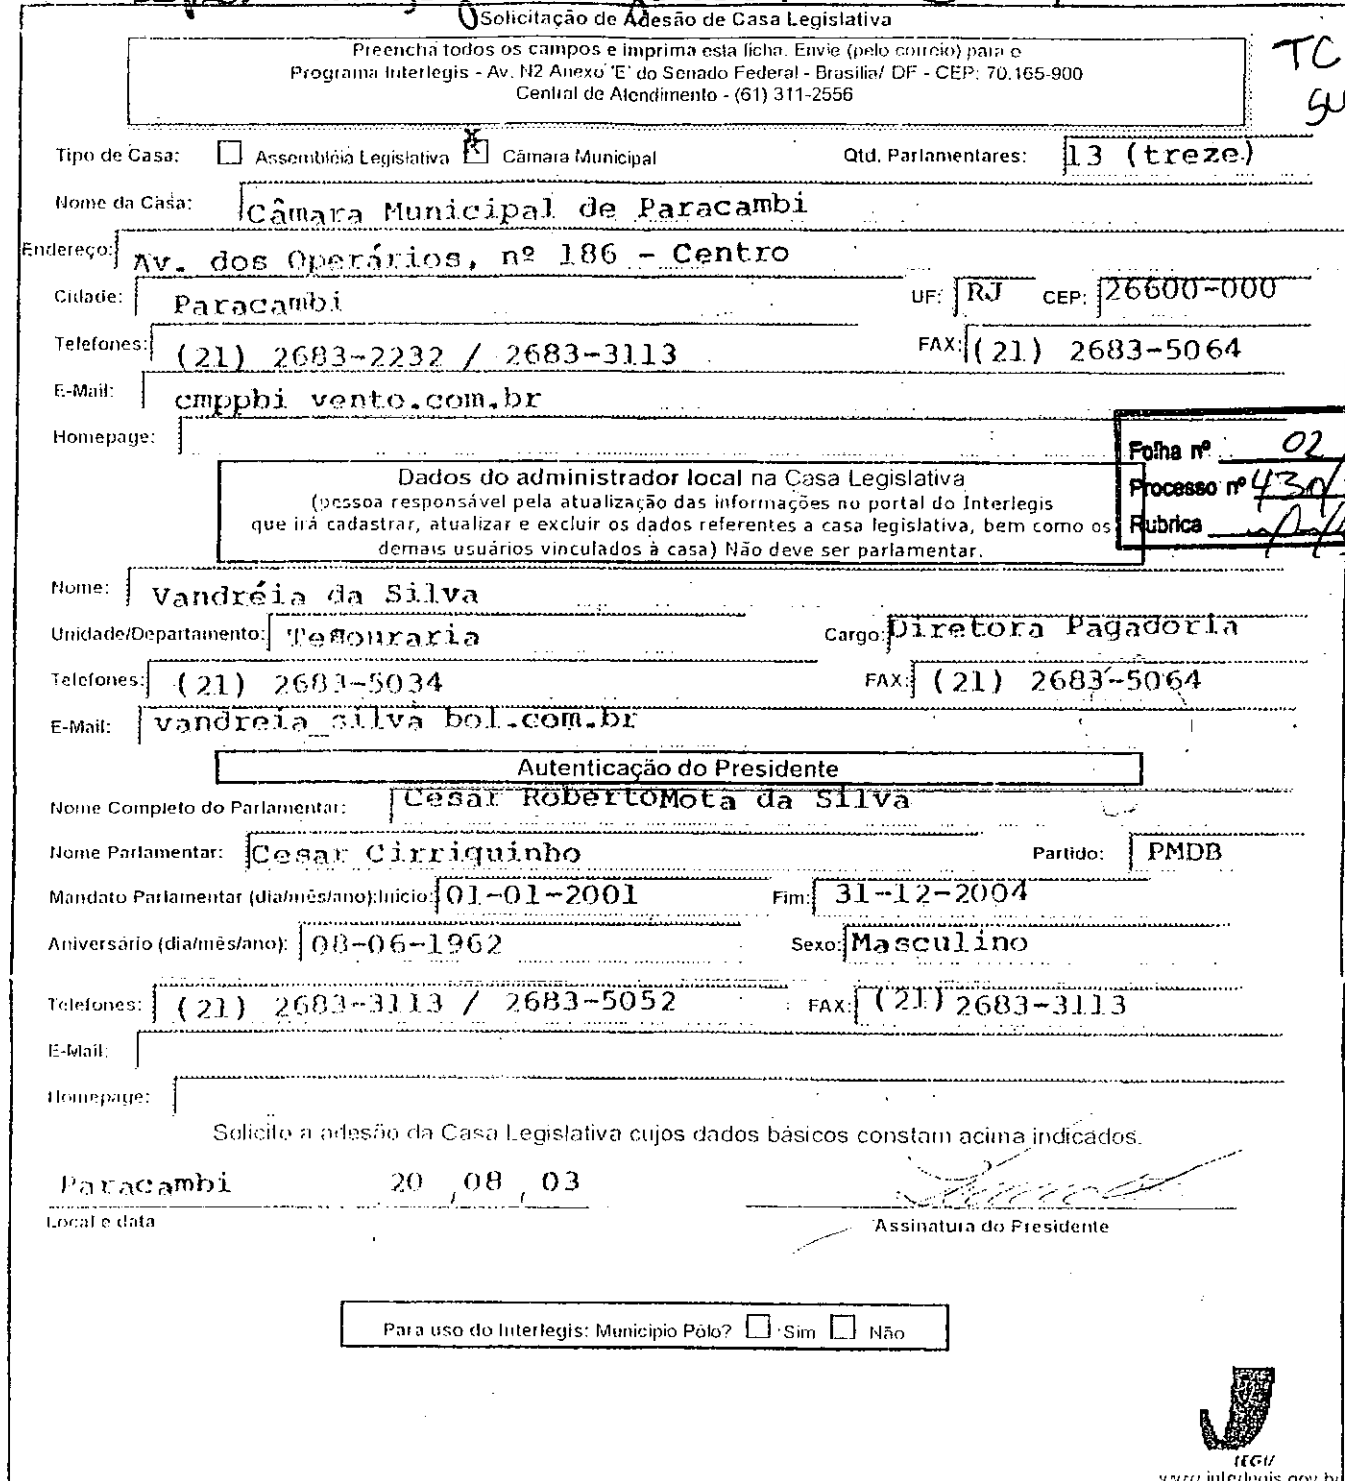 Solicitação de Adesão de Casa Legislativa
Preencha todos os campos e imprima esta ficha. Envie (pelo correio) para o
Programa Interlegis - Av. N2 Anexo 'E' do Senado Federal - Brasília/ DF - CEP: 70.165-900
Central de Atendimento - (61) 311-2556
TC
Tipo de Casa: Assembléia Legislativa X Câmara Municipal Qtd. Parlamentares: 13 (treze)
Nome da Casa: Câmara Municipal de Paracambi
Endereço: Av. dos Operários, nº 186 - Centro
Cidade: Paracambi UF: RJ CEP: 26600-000
Telefones: (21) 2683-2232 / 2683-3113 FAX: (21) 2683-5064
E-Mail: cmppbi vento.com.br
Homepage:
Folha nº 02
Processo nº 430/
Rubrica
Dados do administrador local na Casa Legislativa
(pessoa responsável pela atualização das informações no portal do Interlegis
que irá cadastrar, atualizar e excluir os dados referentes a casa legislativa, bem como os
demais usuários vinculados à casa) Não deve ser parlamentar.
Nome: Vandréia da Silva
Unidade/Departamento: Tesouraria Cargo: Diretora Pagadoria
Telefones: (21) 2683-5034 FAX: (21) 2683-5064
E-Mail: vandreia_silva bol.com.br
Autenticação do Presidente
Nome Completo do Parlamentar: Cesar RobertoMota da Silva
Nome Parlamentar: Cesar Cirriquinho Partido: PMDB
Mandato Parlamentar (dia/mês/ano):Início: 01-01-2001 Fim: 31-12-2004
Aniversário (dia/mês/ano): 08-06-1962 Sexo: Masculino
Telefones: (21) 2683-3113 / 2683-5052 FAX: (21) 2683-3113
E-Mail:
Homepage:
Solicito a adesão da Casa Legislativa cujos dados básicos constam acima indicados.
Paracambi 20 , 08 , 03
Local e data Assinatura do Presidente
Para uso do Interlegis: Município Pólo? Sim Não
www.interlegis.gov.br